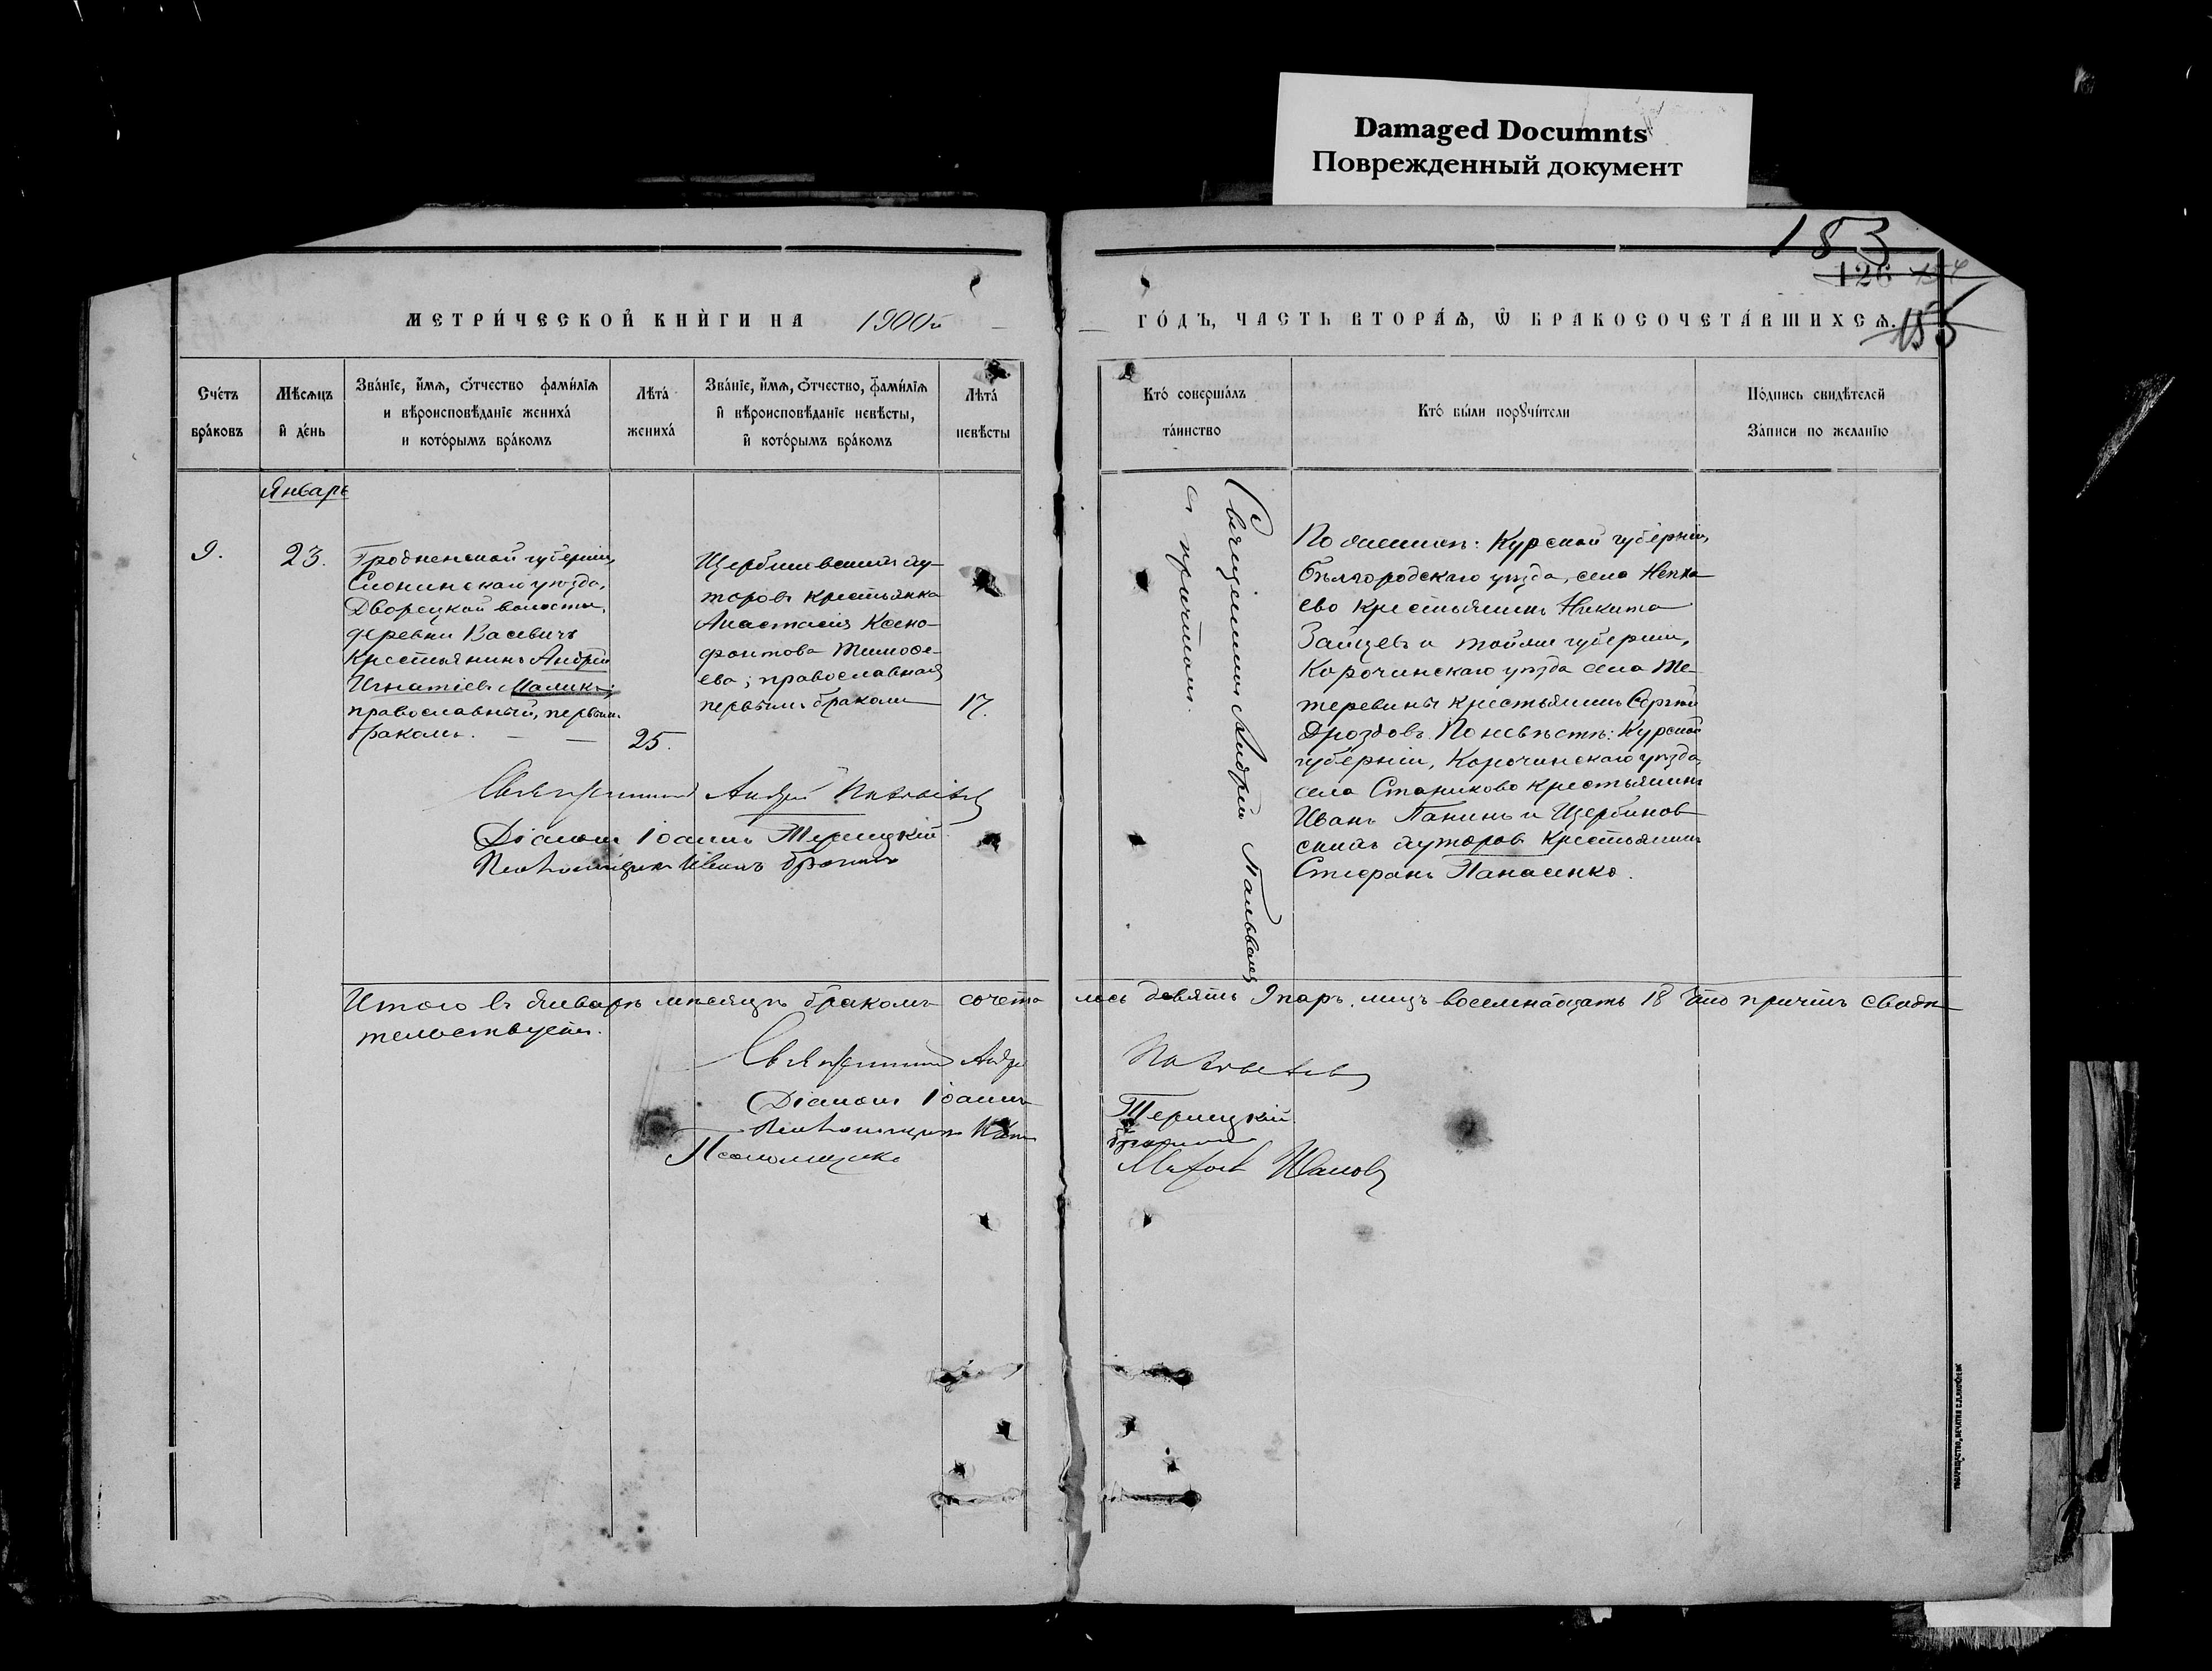 Damaged Documnts
Поврежденный документ
183
126
155
МЕТРИ́ЧЕСКОЙ КНИ́ГИ НА 1900й
ГО́ДЪ, ЧАСТЬ ВТОРА́Ѧ, Ѿ БРАКОСОЧЕТА́ВШИХСѦ.
Сче́тъ бра́ковъ
Мѣсѧцъ и҆ де́нь
Зва́нїе, и҆́мѧ, ѻ҆́тчество фами́лїѧ
и вѣроисповѣ́данїе жениха́
и кото́рымъ бра́комъ
Лѣта́ жениха́
Зва́нїе, и҆́мѧ, ѻ҆́тчество, фами́лїѧ
и҆ вѣроисповѣ́данїе невѣ́сты,
и҆ кото́рымъ бра́комъ
Лѣта́ невѣ́сты
Кто́ соверша́лъ та́инство
Кто́ бы́ли порꙋчи́тели
По́дпись свидѣ́телей
За́писи по жела́нїю
Январь
9.
23.
Гродненской губерніи,
Слонимскаго уѣзда,
Дворецкой волости,
деревни Васевичъ
крестьянинъ Андрей
Игнатіевъ Маликъ;
православный, первымъ
бракомъ.
25.
Щербиновскихъ ху-
торовъ крестьянка
Анастасія Ксено-
фонтова Тимоѳе-
ева; православная,
первымъ бракомъ
17.
Священникъ Андрей
Діаконъ Іоаннъ Терлецкій
Псаломщикъ Иванъ
Священникъ Андрей
съ причтомъ.
По женихѣ: Курской губерніи,
Бѣлгородскаго уѣзда, села Непха-
ево крестьянинъ Никита
Зайцевъ и тойже губерніи,
Корочинскаго уѣзда села Те-
теревины крестьянинъ Сергѣй
Дроздовъ. По невѣстѣ: Курской
губерніи, Корочинскаго уѣзда,
села Стариково крестьянинъ
Иванъ Панинъ и Щербинов-
скихъ хуторовъ крестьянинъ
Стефанъ Панасенко.
Итого въ Январѣ мѣсяцѣ бракомъ сочета лось девять 9 паръ, лицъ восемнадцать 18 что причтъ свидѣ-
тельствуетъ.
Священникъ Андрей
Діаконъ Іоаннъ Терлецкій
Псаломщикъ Иванъ
Псаломщикъ